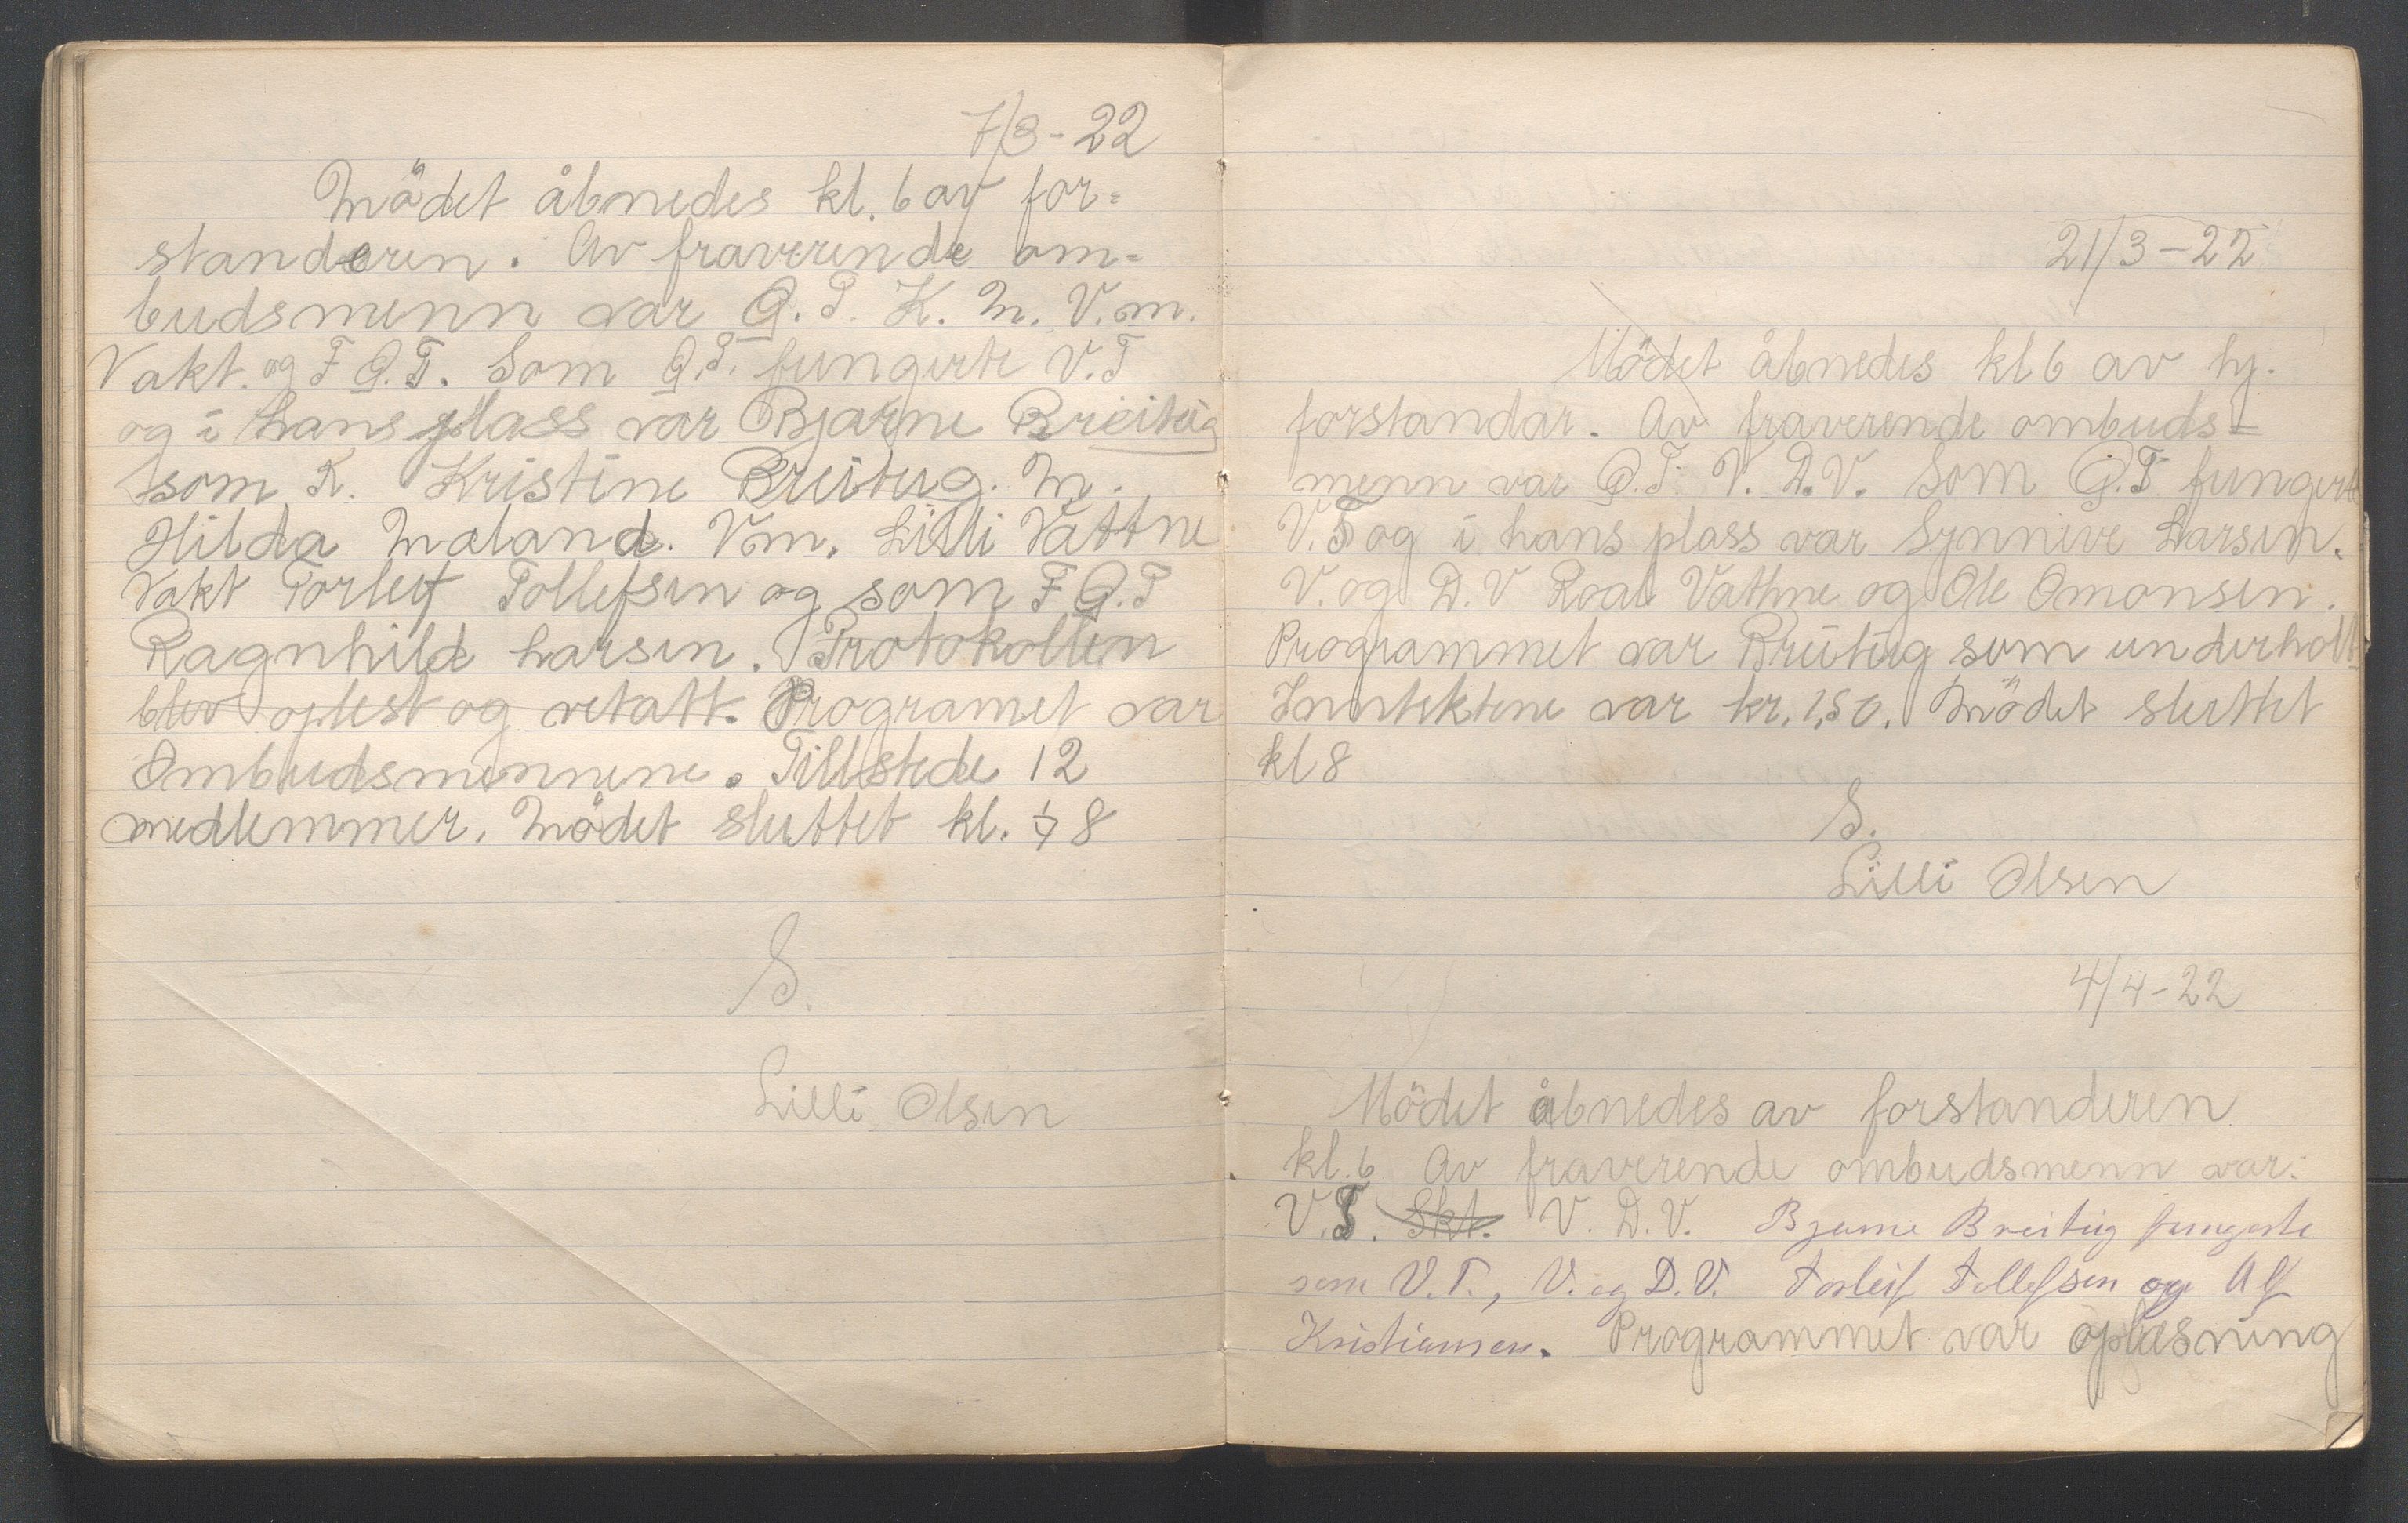 7/3-22
Mödet åbnedes kl. 6 av for=
standeren. Av fraverende om=
budsmenn var Q.T. K. M. V.m.
Vakt. og F Q.T. Som Q.T. fungerte V.T
og i hans plass var Bjarne Breiteig
som K. Kristine Breiteig. M.
Hilda Moland. Vm. Lilli Vattne
Vakt Torleif Tollefsen og som F.Q.T
Ragnhild Larsen. Protokollen
blev oplest og vetatt. Programet var
Ombudsmennene. Tillstede 12
medlemmer. Mödet sluttet kl. 8
S.
Lilli Olsen
21/3-22
Mödet åbnedes kl 6 av hj.
forstandar. Av fraverende ombuds=
menn var Q.T. V. D.V. Som Q.T. fungerte
V.T og i hans plass var Synnive Larsen.
V. og D.V Roal Vathne og Ole Omonsen.
Programmet var Breiteig som underholt
Inntektene var kr. 1,50. Mödet sluttet
kl 8
S.
Lilli Olsen
4/4-22
Mödet åbnedes av forstanderen
kl. 6 Av fraverende ombudsmenn var:
V.T. Skt. V. D.V. Bjarne Breiteig fungerte
som V.T., V. og D.V. Torleif Tollefsen og Alf
Kristiansen. Programmet var oplæsning